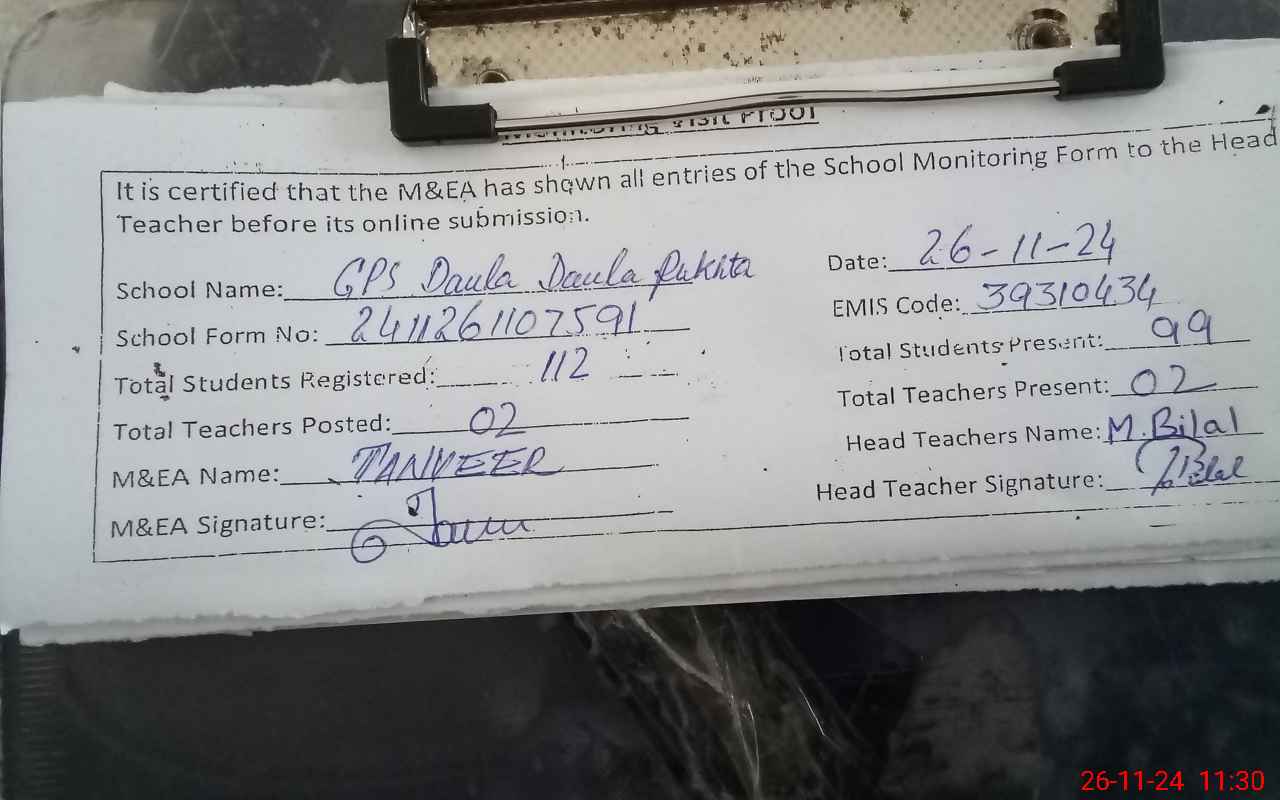 Monitoring Visit Proof
It is certified that the M&EA has shown all entries of the School Monitoring Form to the Head
Teacher before its online submission.
School Name: GPS Daula Daula Pukhta Date: 26-11-24
School Form No: 2411261107591 EMIS Code: 39310434
Total Students Registered: 112 Total Students Present: 99
Total Teachers Posted: 02 Total Teachers Present: 02
M&EA Name: TANVEER Head Teachers Name: M.Bilal
M&EA Signature: Head Teacher Signature: Bilal
26-11-24 11:30